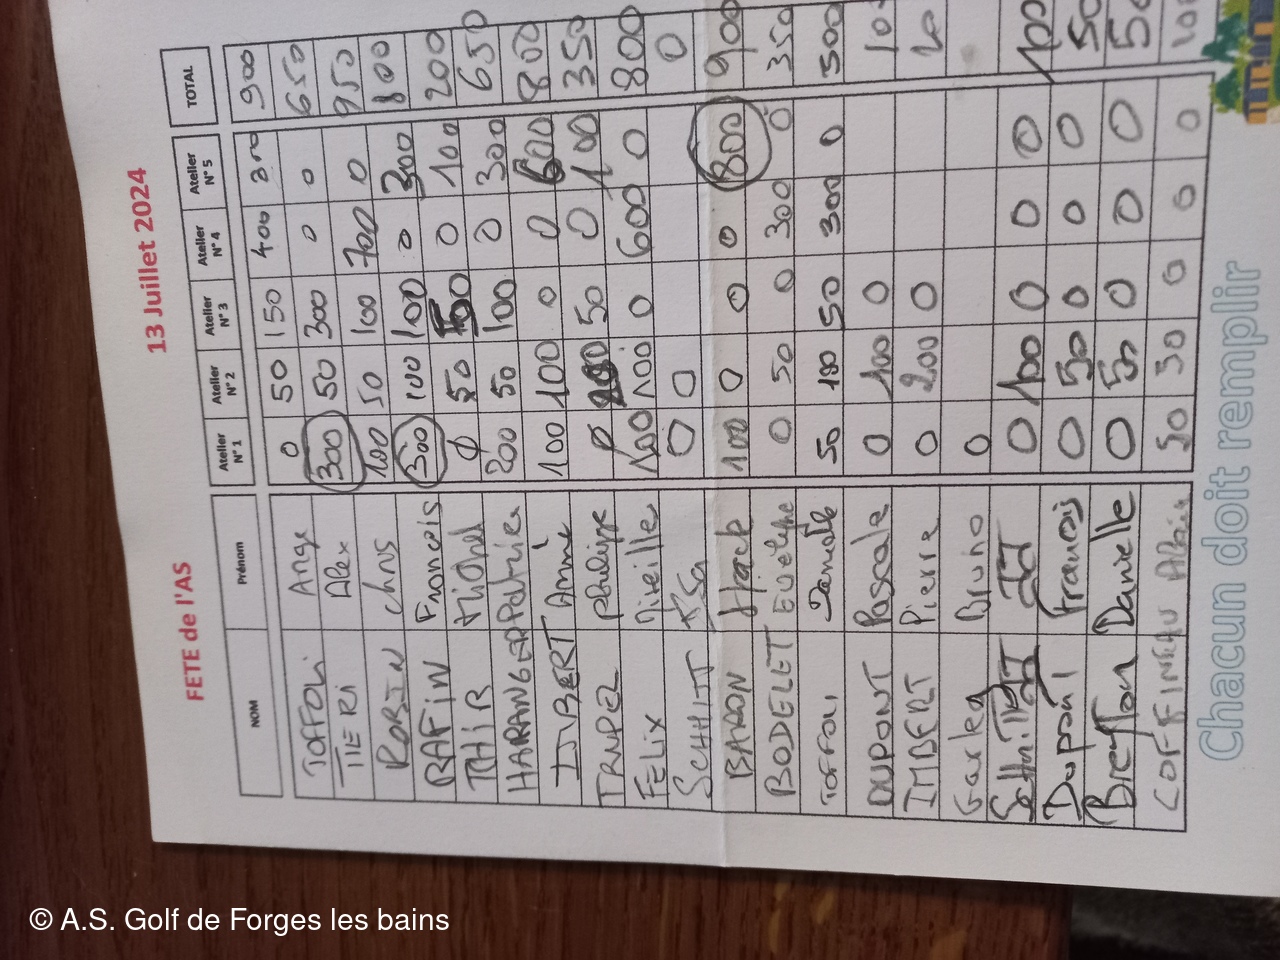 FETE de l'AS 13 Juillet 2024
NOM Prénom Atelier N° 1 Atelier N° 2 Atelier N° 3 Atelier N° 4 Atelier N° 5 TOTAL
TOFFOLI Ange 0 50 150 400 300 900
TIERI Alex 300 50 300 0 0 650
ROBIN chris 100 50 100 700 0 950
BAFIN Francois 300 100 100 0 300 800
THIR Michel 0 50 50 0 100 200
HARANGER Patricia 200 50 100 0 300 650
IMBERT Annie 100 100 0 0 600 800
TRUPEL Philippe 0 50 0 100 350
FELIX Mireille 100 100 0 600 0 800
SCHMITT 0 0 0
BARON 100 0 0 0 800 900
BODELET EVelyne 0 50 0 300 0 350
TOFFOLI Danièle 50 100 50 300 0 500
DUPONT Pascale 0 100 0
IMBERT Pierre 0 200 0
Bruno 0
0 100 0 0 0 100
Dupont francois 0 50 0 0 0 50
Breton Danielle 0 50 0 0 0 50
COFFINEAU Alain 50 50 0 0 0 100
Chacun doit remplir
© A.S. Golf de Forges les bains